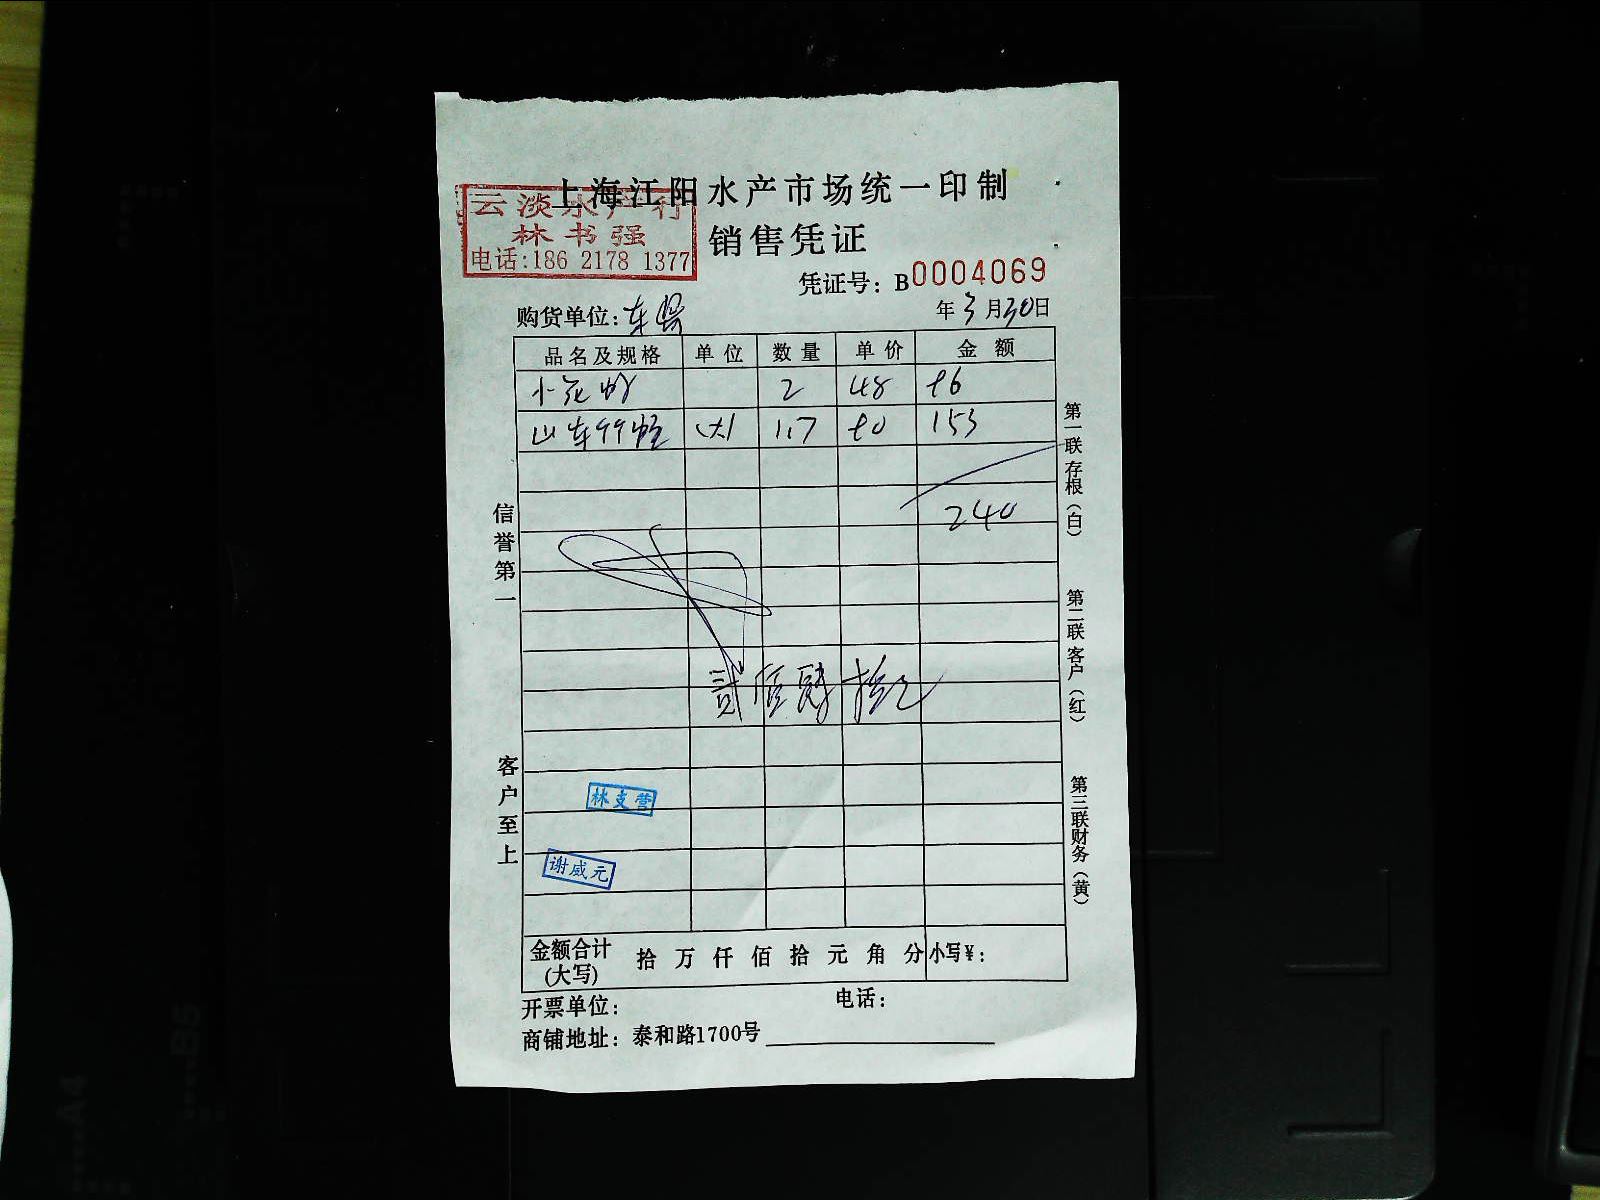 上海江阳水产市场统一印制
云淡水产行
林书强
电话:186 2178 1377
销售凭证
凭证号: B0004069
购货单位:
年3月30日
品名及规格 单位 数量 单价 金额
小花蚬 2 48 96
山东竹蛏 (大) 1.7 90 153
240
贰佰肆拾元
信誉第一
客户至上
第一联存根(白)
第二联客户(红)
第三联财务(黄)
林支营
谢威元
金额合计(大写) 拾 万 仟 佰 拾 元 角 分 小写¥:
开票单位: 电话:
商铺地址: 泰和路1700号